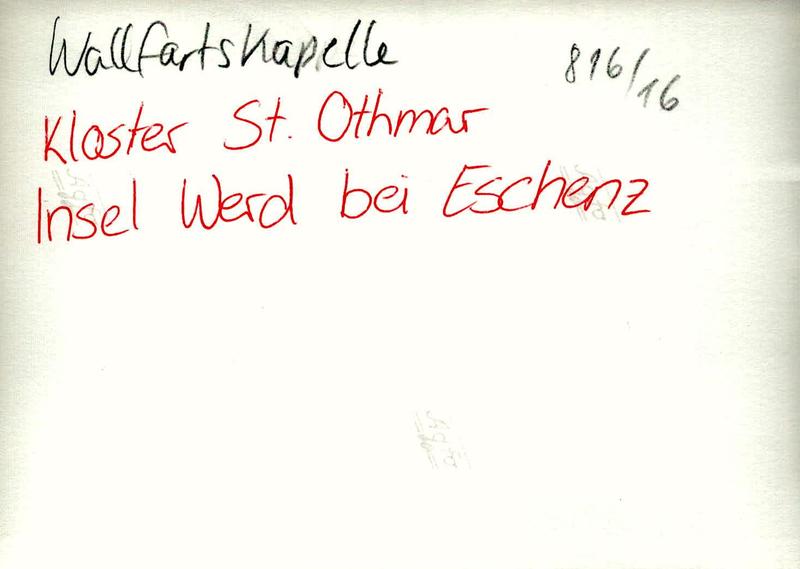 Wallfartskapelle
816/16
Kloster St. Othmar
Insel Werd bei Eschenz